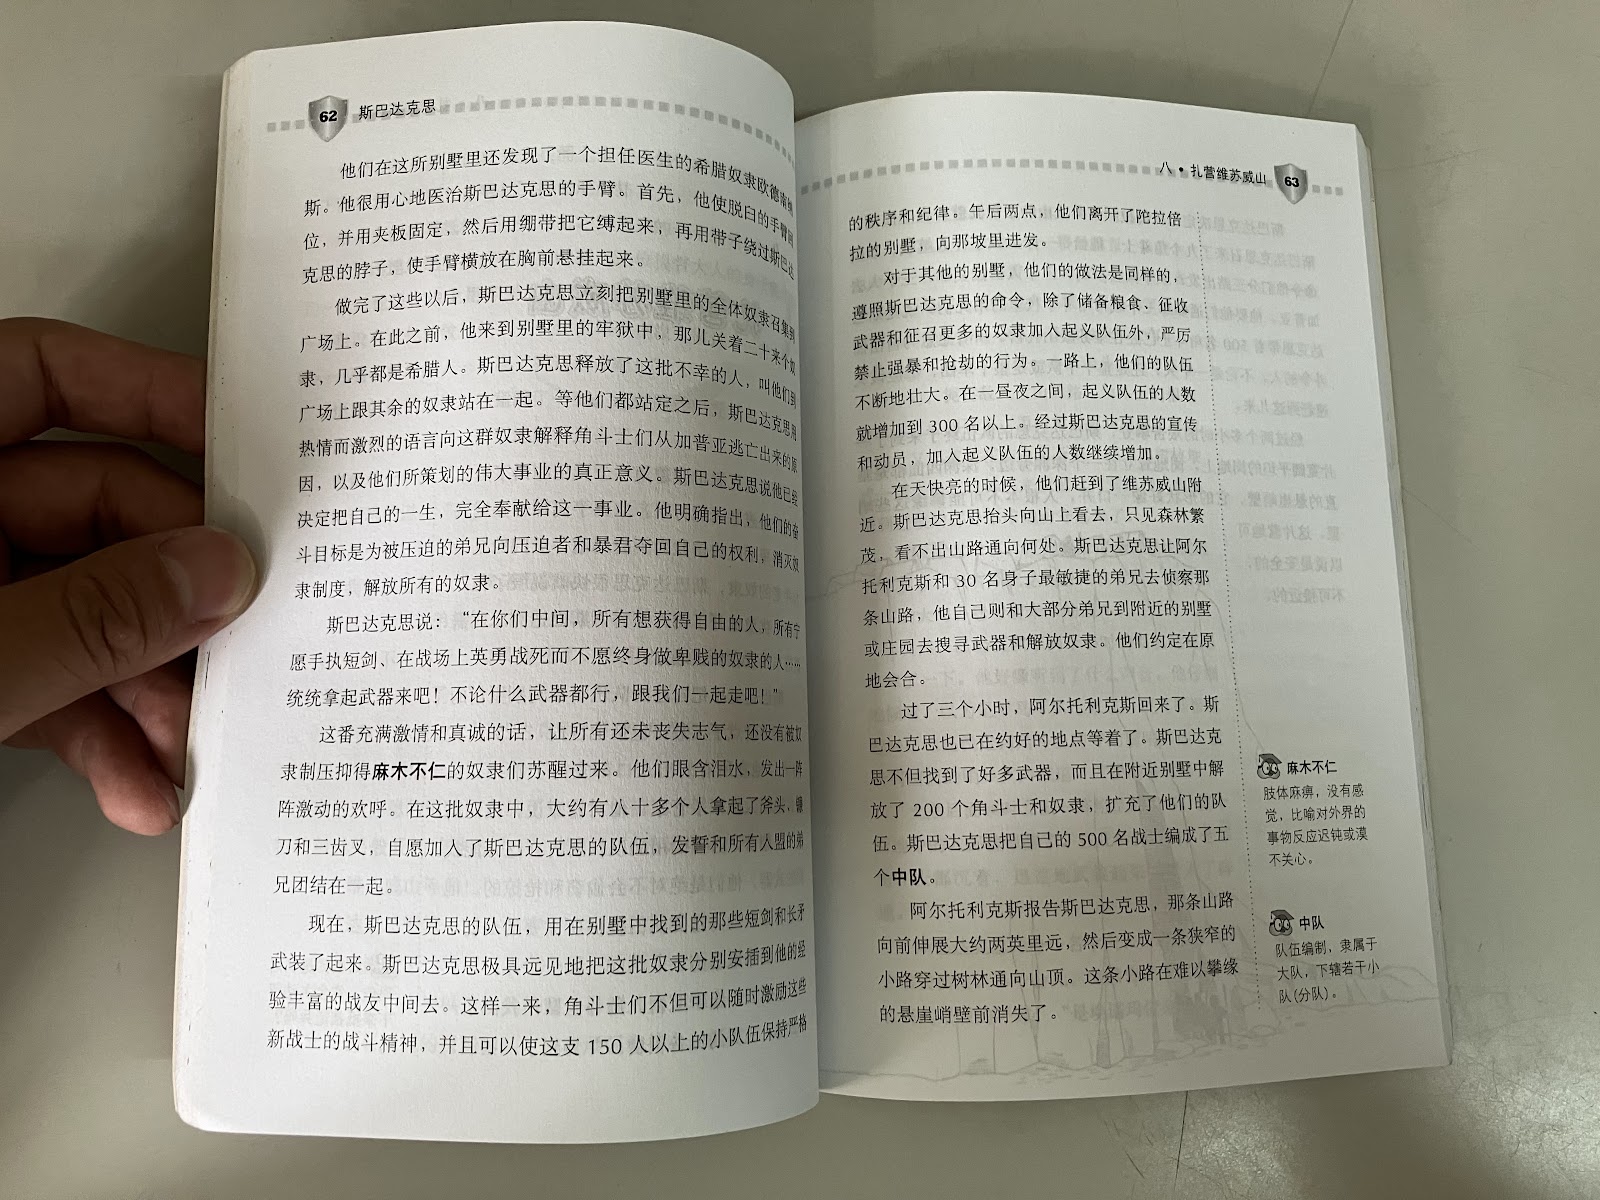 62 斯巴达克思
他们在这所别墅里还发现了一个担任医生的希腊奴隶欧德
斯。他很用心地医治斯巴达克思的手臂。首先，他使脱臼的手臂
位，并用夹板固定，然后用绷带把它缚起来，再用带子绕过斯巴达
克思的脖子，使手臂横放在胸前悬挂起来。
做完了这些以后，斯巴达克思立刻把别墅里的全体奴隶召集到
广场上。在此之前，他来到别墅里的牢狱中，那儿关着二十来个奴
隶，几乎都是希腊人。斯巴达克思释放了这批不幸的人，叫他们到
广场上跟其余的奴隶站在一起。等他们都站定之后，斯巴达克思用
热情而激烈的语言向这群奴隶解释角斗士们从加普亚逃亡出来的原
因，以及他们所策划的伟大事业的真正意义。斯巴达克思说他已经
决定把自己的一生，完全奉献给这一事业。他明确指出，他们的奋
斗目标是为被压迫的弟兄向压迫者和暴君夺回自己的权利，消灭奴
隶制度，解放所有的奴隶。
斯巴达克思说：“在你们中间，所有想获得自由的人，所有宁
愿手执短剑、在战场上英勇战死而不愿终身做卑贱的奴隶的人……
统统拿起武器来吧！不论什么武器都行，跟我们一起走吧！”
这番充满激情和真诚的话，让所有还未丧失志气，还没有被奴
隶制压抑得麻木不仁的奴隶们苏醒过来。他们眼含泪水，发出一阵
阵激动的欢呼。在这批奴隶中，大约有八十多个人拿起了斧头、镰
刀和三齿叉，自愿加入了斯巴达克思的队伍，发誓和所有人盟的弟
兄团结在一起。
现在，斯巴达克思的队伍，用在别墅中找到的那些短剑和长矛
武装了起来。斯巴达克思极具远见地把这批奴隶分别安插到他的经
验丰富的战友中间去。这样一来，角斗士们不但可以随时激励这些
新战士的战斗精神，并且可以使这支 150 人以上的小队伍保持严格
八·扎营维苏威山 63
的秩序和纪律。午后两点，他们离开了陀拉倍
拉的别墅，向那坡里进发。
对于其他的别墅，他们的做法是同样的，
遵照斯巴达克思的命令，除了储备粮食、征收
武器和征召更多的奴隶加入起义队伍外，严厉
禁止强暴和抢劫的行为。一路上，他们的队伍
不断地壮大。在一昼夜之间，起义队伍的人数
就增加到 300 名以上。经过斯巴达克思的宣传
和动员，加入起义队伍的人数继续增加。
在天快亮的时候，他们赶到了维苏威山附
近。斯巴达克思抬头向山上看去，只见森林繁
茂，看不出山路通向何处。斯巴达克思让阿尔
托利克斯和 30 名身子最敏捷的弟兄去侦察那
条山路，他自己则和大部分弟兄到附近的别墅
或庄园去搜寻武器和解放奴隶。他们约定在原
地会合。
过了三个小时，阿尔托利克斯回来了。斯
巴达克思也已在约好的地点等着了。斯巴达克
思不但找到了好多武器，而且在附近别墅中解
放了 200 个角斗士和奴隶，扩充了他们的队
伍。斯巴达克思把自己的 500 名战士编成了五
个中队。
阿尔托利克斯报告斯巴达克思，那条山路
向前伸展大约两英里远，然后变成一条狭窄的
小路穿过树林通向山顶。这条小路在难以攀缘
的悬崖峭壁前消失了。
麻木不仁
肢体麻痹，没有感
觉，比喻对外界的
事物反应迟钝或漠
不关心。
中队
队伍编制，隶属于
大队，下辖若干小
队(分队)。